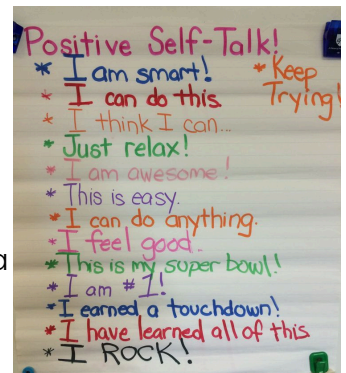 Positive Self-Talk!
* I am smart!
* Keep
Trying!
* I can do this.
* I think I can...
* Just relax!
* I am awesome!
* This is easy.
* I can do anything.
* I feel good...
a
* This is my super bowl!
* I am #1!
* I earned a touchdown!
* I have learned all of this
* I ROCK!